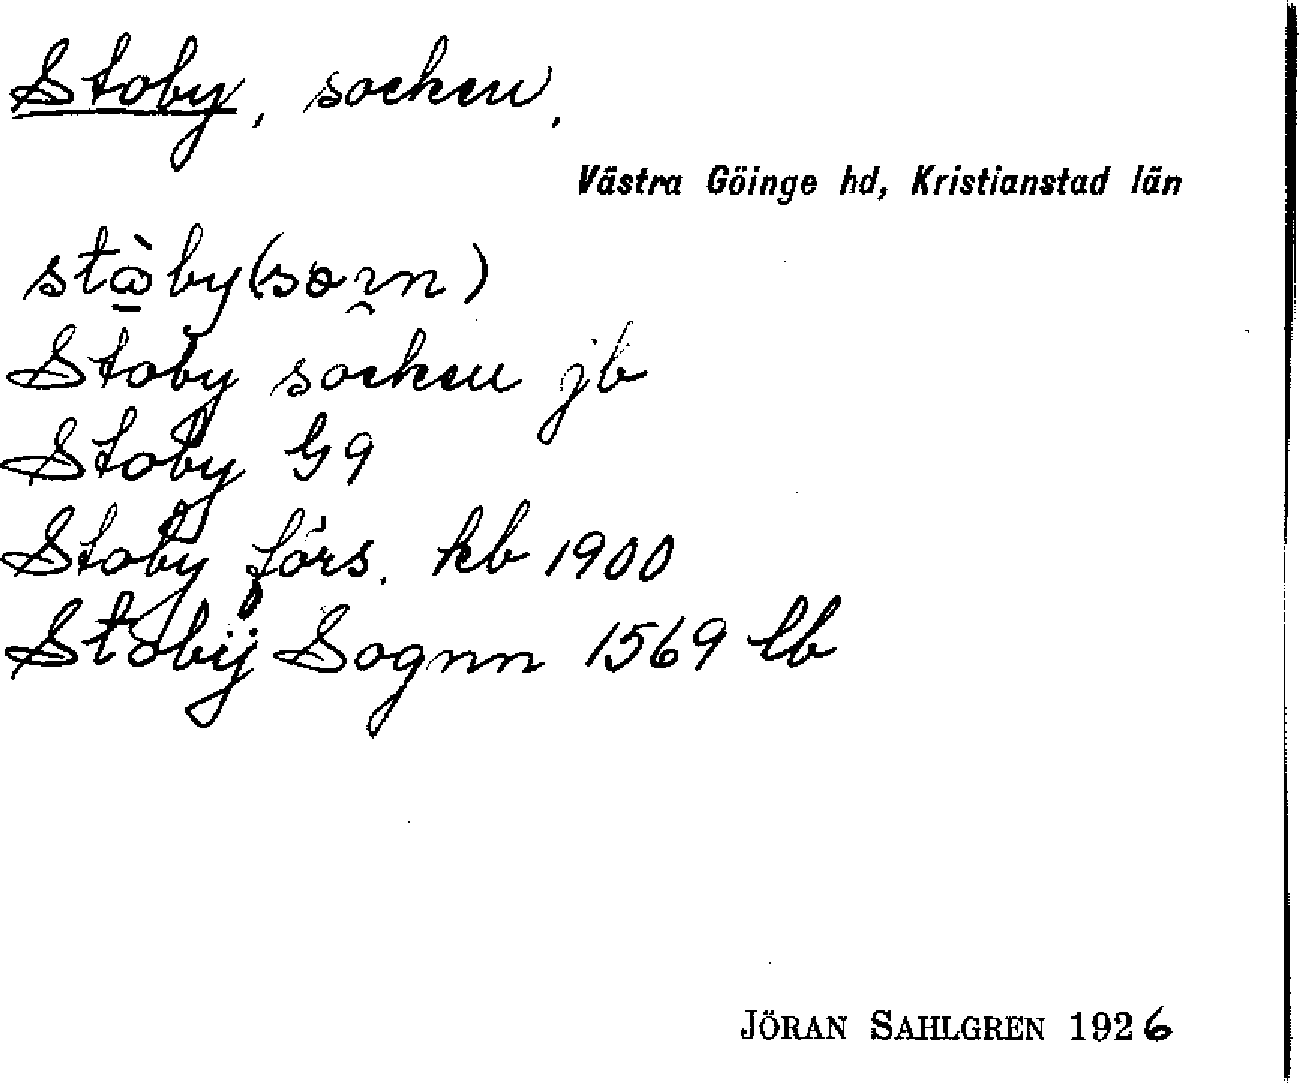 Stoby, socken.
Västra Göinge hd, Kristianstad län
Stoby socken jb
Stoby G9
Stoby förs. kb 1900
Stobÿ Sognn 1569 lb
JÖRAN SAHLGREN 1926